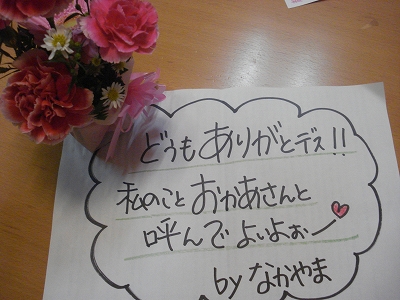 どうもありがとデス!!
私のことおかあさんと
呼んでよいよぉー
by なかやま